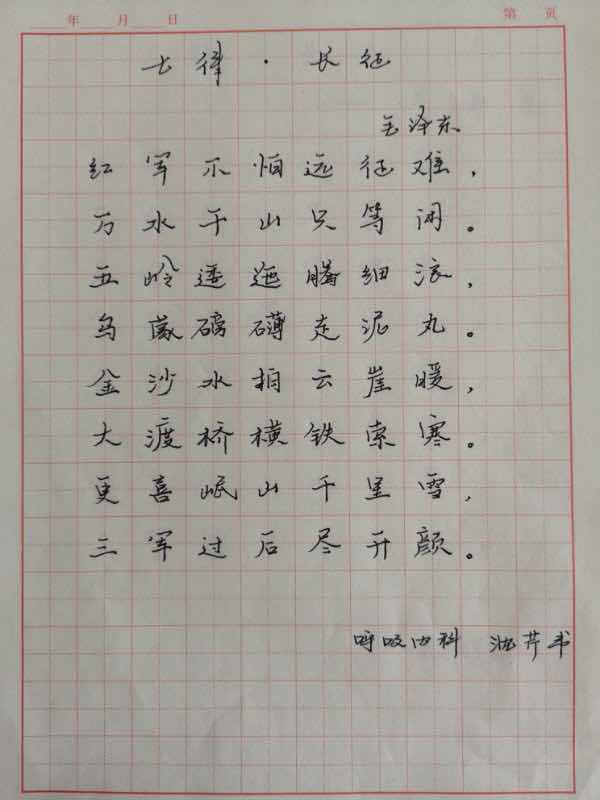 年 月 日 第 页
七律·长征
毛泽东
红军不怕远征难，
万水千山只等闲。
五岭逶迤腾细浪，
乌蒙磅礴走泥丸。
金沙水拍云崖暖，
大渡桥横铁索寒。
更喜岷山千里雪，
三军过后尽开颜。
呼吸内科 芹书